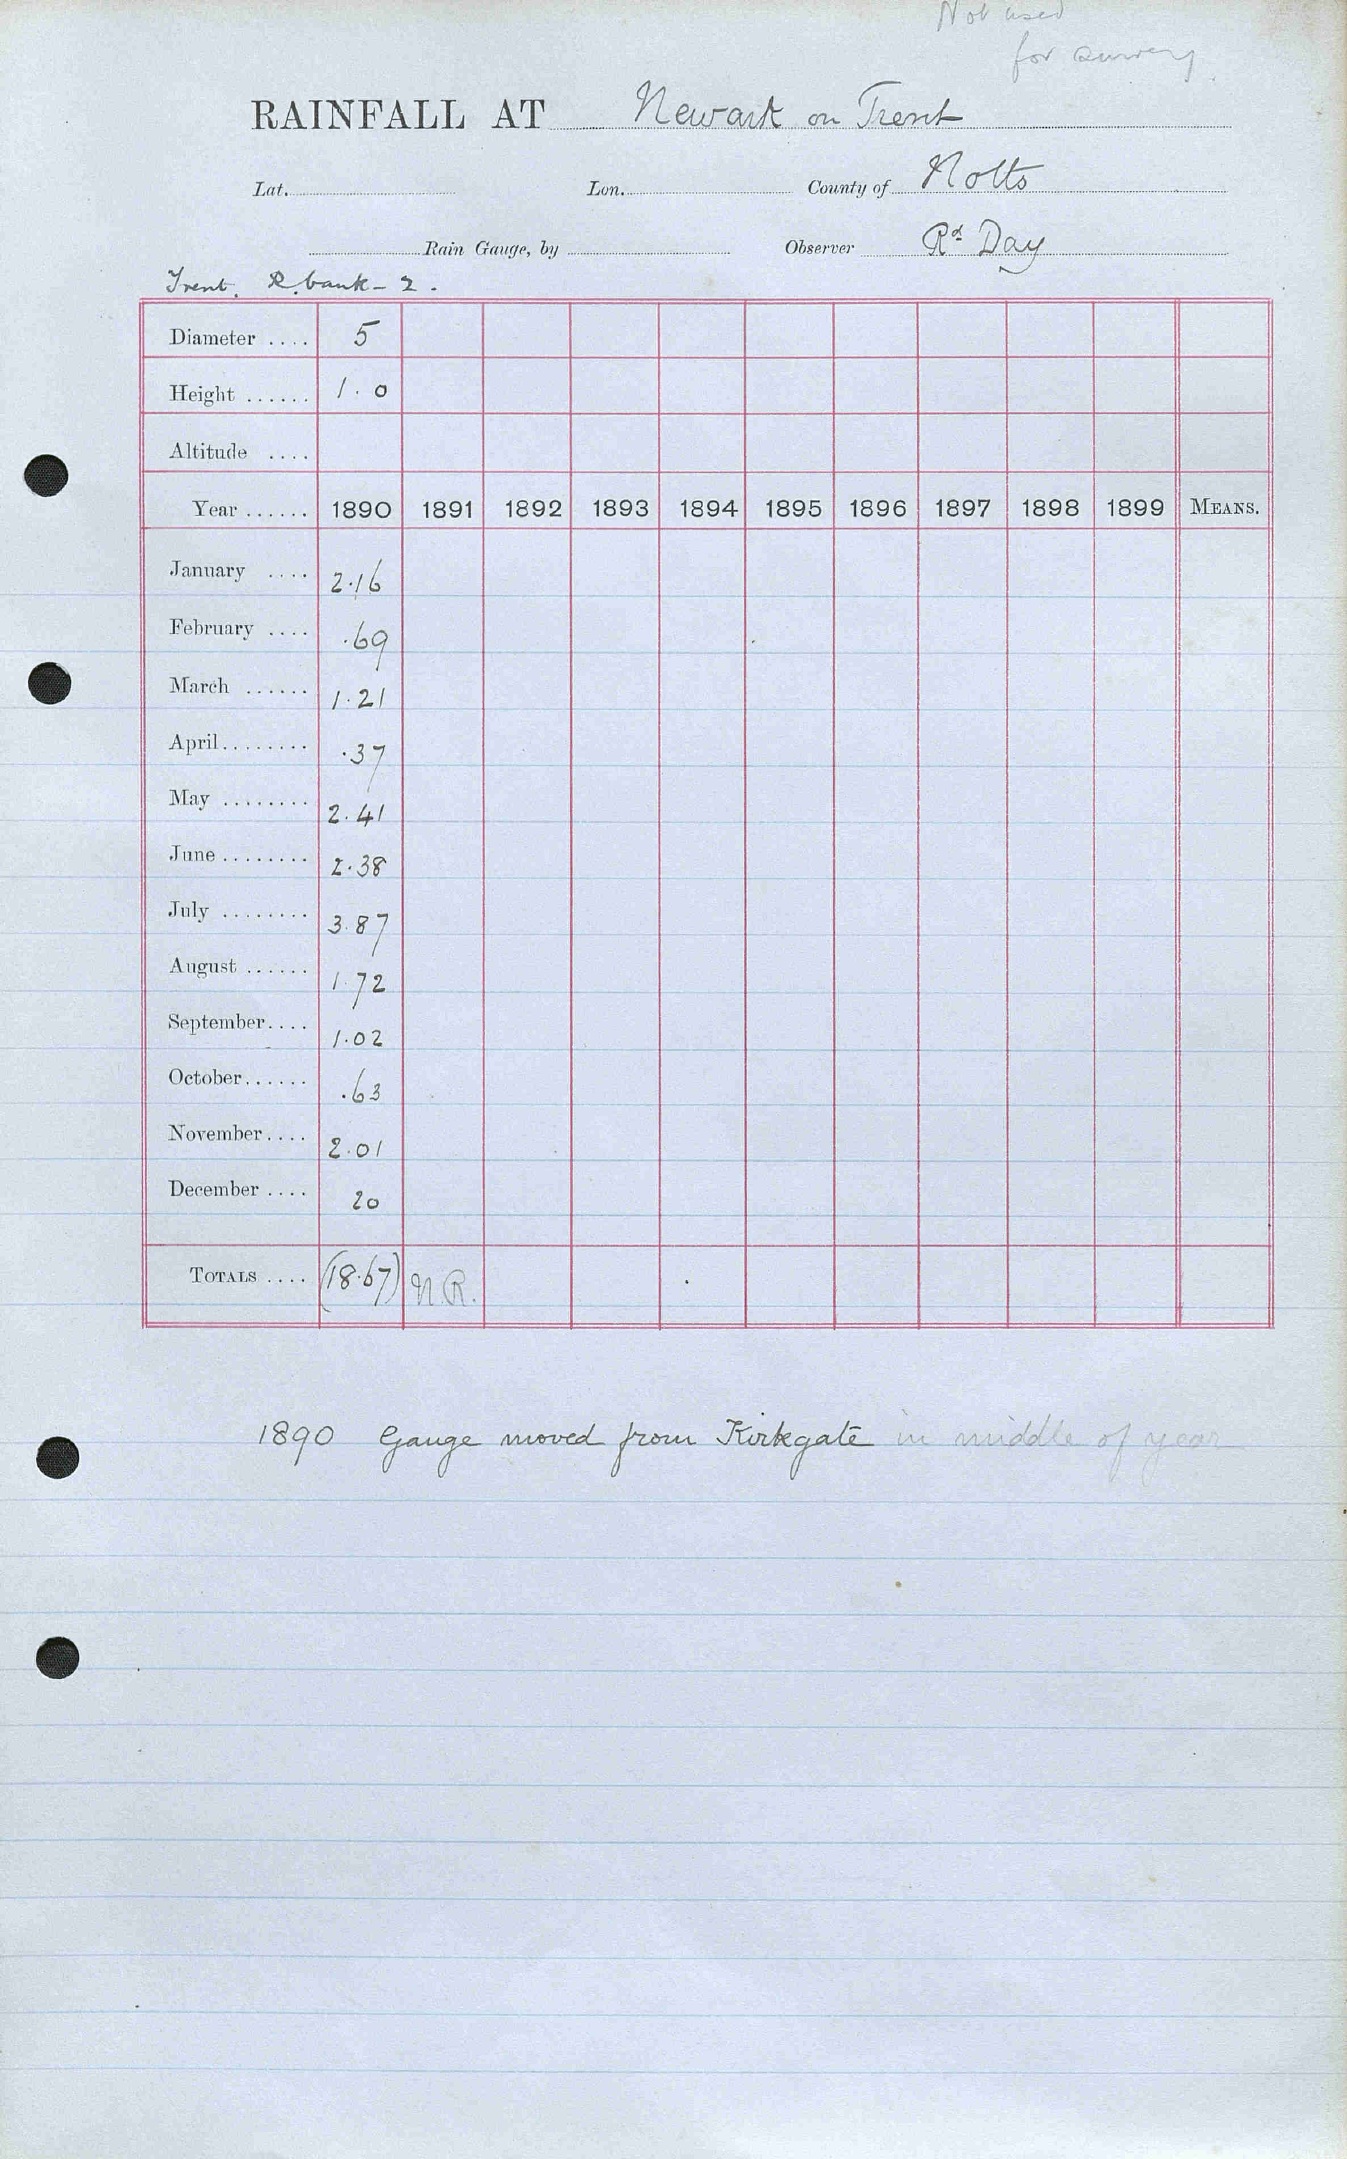 Not used
for survey.
RAINFALL AT Newark on Trent
Lat. Lon. County of Notts
Rain Gauge, by Observer Rd Day
Trent. R. bank - 2.
Diameter .... 5
Height ...... 1.0
Altitude ....
Year ...... 1890 1891 1892 1893 1894 1895 1896 1897 1898 1899 MEANS.
January .... 2.16
February .... .69
March ...... 1.21
April........ .37
May ........ 2.41
June ........ 2.38
July ........ 3.87
August ...... 1.72
September.... 1.02
October...... .63
November.... 2.01
December .... 20
TOTALS .... (18.67) N.R.
1890 Gauge moved from Kirkgate in middle of year